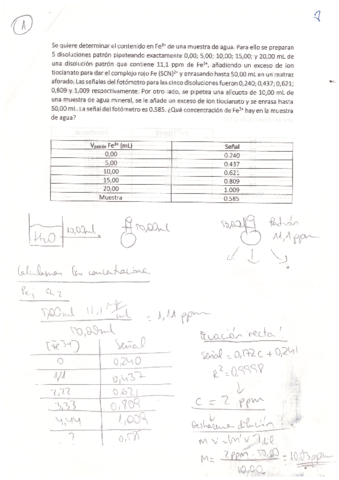 1
Se quiere determinar el contenido en Fe³⁺ de una muestra de agua. Para ello se preparan
5 disoluciones patrón pipeteando exactamente 0,00; 5,00; 10,00; 15,00; y 20,00 mL de
una disolución patrón que contiene 11,1 ppm de Fe³⁺, añadiendo un exceso de ion
tiocianato para dar el complejo rojo Fe (SCN)²⁺ y enrasando hasta 50,00 mL en un matraz
aforado. Las señales del fotómetro para las cinco disoluciones fueron 0,240; 0,437; 0,621;
0,809 y 1,009 respectivamente. Por otro lado, se pipetea una alícuota de 10,00 mL de
una muestra de agua mineral, se le añade un exceso de ion tiocianato y se enrasa hasta
50,00 mL. La señal del fotómetro es 0.585. ¿Qué concentración de Fe³⁺ hay en la muestra
de agua?
Fe³⁺ (mL) Señal
0,00 0.240
5,00 0.437
10,00 0.621
15,00 0.809
20,00 1.009
Muestra 0.585
H₂O 10,00mL 50,00ml 50,00ml Patrón
11,1 ppm
Calculamos las concentraciones
5,00ml 11,1 = 1,11 ppm
[Fe3+] Señal
0 0,240
1,11 0,437
2,22 0,621
3,33 0,809
4,44 1,009
? 0,585
Ecuación recta:
Señal = 0,172 C + 0,241
R² = 0,9998
C = 2 ppm
Deshacemos dilución:
M = 2ppm · 50,00 = 10,03 ppm
10,00